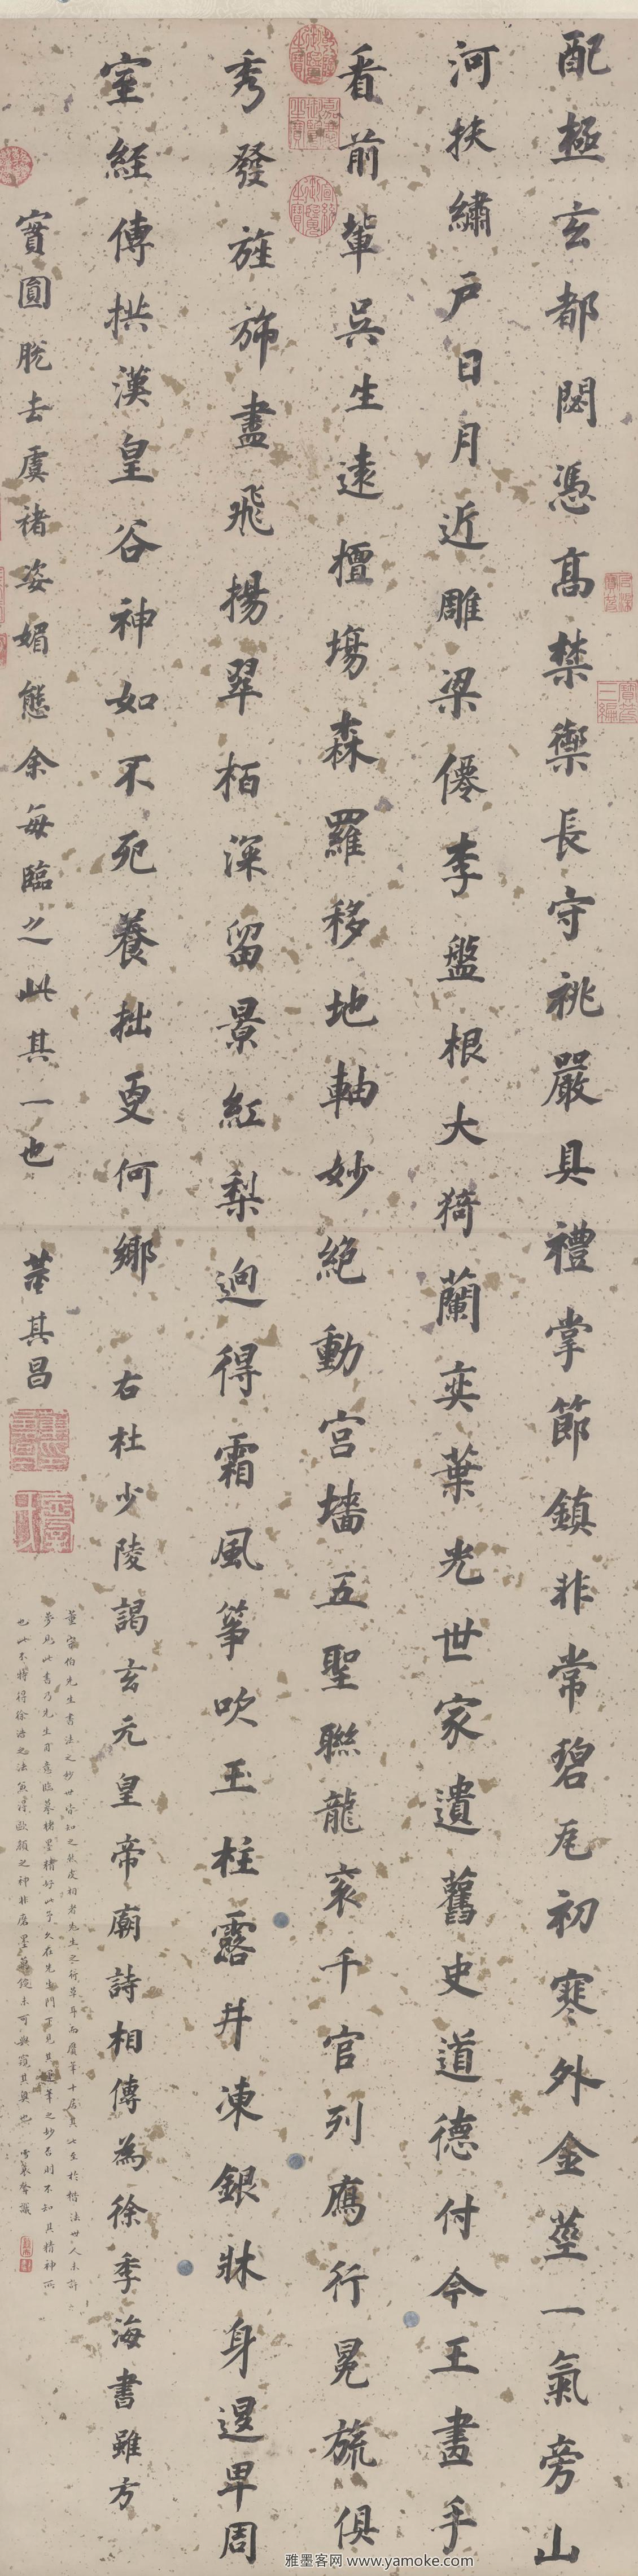 配極玄都閟憑高禁籞長守祧嚴具禮掌節鎮非常碧瓦初寒外金莖一氣旁山
河扶繡戶日月近雕梁僊李盤根大猗蘭奕葉光世家遺舊史道德付今王畫手
看前輩吳生遠擅場森羅移地軸妙絕動宮墻五聖聯龍袞千官列鴈行冕旒俱
秀發旌旆盡飛揚翠栢深留景紅梨迥得霜風箏吹玉柱露井凍銀牀身退卑周
室經傳拱漢皇谷神如不死養拙更何鄉 右杜少陵謁玄元皇帝廟詩相傳為徐季海書雖方
實圓脫去虞褚姿媚態余每臨之此其一也 董其昌
董宗伯先生書法之妙世皆知之
雅墨客网 www.yamoke.com